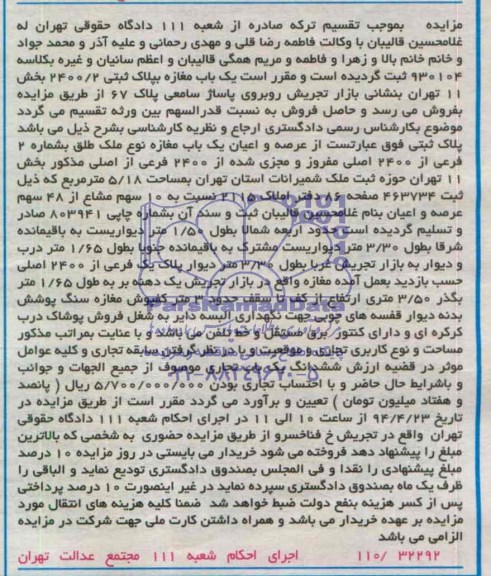 مزایده    بموجب تقسیم ترکه صادره از شعبه ۱۱۱ دادگاه حقوقی تهران له
غلامحسین قالیبان با وکالت فاطمه رضا قلی و مهدی رحمانی و علیه آذر و محمد جواد
و خانم خانم بالا و زهرا و فاطمه و مریم همگی قالیبان و اعظم سانیان و غیره بکلاسه
۹۳۰۱۰۴ ثبت گردیده است و مقرر است یک باب مغازه بپلاک ثبتی ۲۴۰۰/۲ بخش
۱۱ تهران بنشانی بازار تجریش روبروی پاساژ سامعی پلاک ۶۷ از طریق مزایده
بفروش می رسد و حاصل فروش به نسبت قدرالسهم بین ورثه تقسیم می گردد
موضوع بکارشناس رسمی دادگستری ارجاع و نظریه کارشناسی بشرح ذیل می باشد
پلاک ثبتی فوق عبارتست از عرصه و اعیان یک باب مغازه نوع ملک طلق بشماره ۲
فرعی از ۲۴۰۰ اصلی مفروز و مجزی شده از ۲۴۰۰ فرعی از اصلی مذکور بخش
۱۱ تهران حوزه ثبت ملک شمیرانات استان تهران بمساحت ۵/۱۸ مترمربع که ذیل
ثبت ۴۶۳۷۳۴ صفحه ۸۶ دفتر املاک نسبت به ۱۰ سهم مشاع از ۴۸ سهم
عرصه و اعیان بنام غلامحسین قالیبان ثبت و سند آن بشماره چاپی ۸۰۳۹۴۱ صادر
و تسلیم گردیده است حدود اربعه شمالا بطول ۱/۵۰ متر دیواریست به باقیمانده
شرقا بطول ۳/۳۰ متر دیواریست مشترک به باقیمانده جنوبا بطول ۱/۶۵ متر درب
و دیوار به بازار تجریش غربا بطول ۳/۳۰ متر دیوار پلاک یک فرعی از ۲۴۰۰ اصلی
حسب بازدید بعمل آمده مغازه واقع در بازار تجریش یک دهنه بر به طول ۱/۶۵ متر
بگذر ۳/۵۰ متری ارتفاع از کف تا سقف حدود متر کفپوش مغازه سنگ پوشش
بدنه دیوار قفسه های چوبی جهت نگهداری البسه دایر به شغل فروش پوشاک درب
کرکره ای و دارای کنتور برق مستقل و خط تلفن می باشد و با عنایت بمراتب مذکور
مساحت و نوع کاربری تجاری و موقعیت و با در نظر گرفتن سابقه تجاری و کلیه عوامل
موثر در قضیه ارزش ششدانگ یک باب تجاری موصوف از جمیع الجهات و جوانب
و باشرایط حال حاضر و با احتساب تجاری بودن ۵/۷۰۰/۰۰۰/۰۰۰ ریال ( پانصد
و هفتاد میلیون تومان ) تعیین و برآورد می گردد مقرر است از طریق مزایده در
تاریخ ۹۴/۴/۲۳ از ساعت ۱۰ الی ۱۱ در اجرای احکام شعبه ۱۱۱ دادگاه حقوقی
تهران واقع در تجریش خ فناخسرو از طریق مزایده حضوری به شخصی که بالاترین
مبلغ را پیشنهاد دهد فروخته می شود خریدار می بایستی در روز مزایده ۱۰ درصد
مبلغ پیشنهادی را نقدا و فی المجلس بصندوق دادگستری تودیع نماید و الباقی را
ظرف یک ماه بصندوق دادگستری سپرده نماید در غیر اینصورت ۱۰ درصد پرداختی
پس از کسر هزینه بنفع دولت ضبط خواهد شد ضمنا کلیه هزینه های انتقال مورد
مزایده بر عهده خریدار می باشد و همراه داشتن کارت ملی جهت شرکت در مزایده
الزامی می باشد
۱۱۰/ ۳۲۲۹۲    اجرای احکام شعبه ۱۱۱ مجتمع عدالت تهران
ParsNamadData
۰۲۱-۸۸۳۴۹۶۷۰-۵